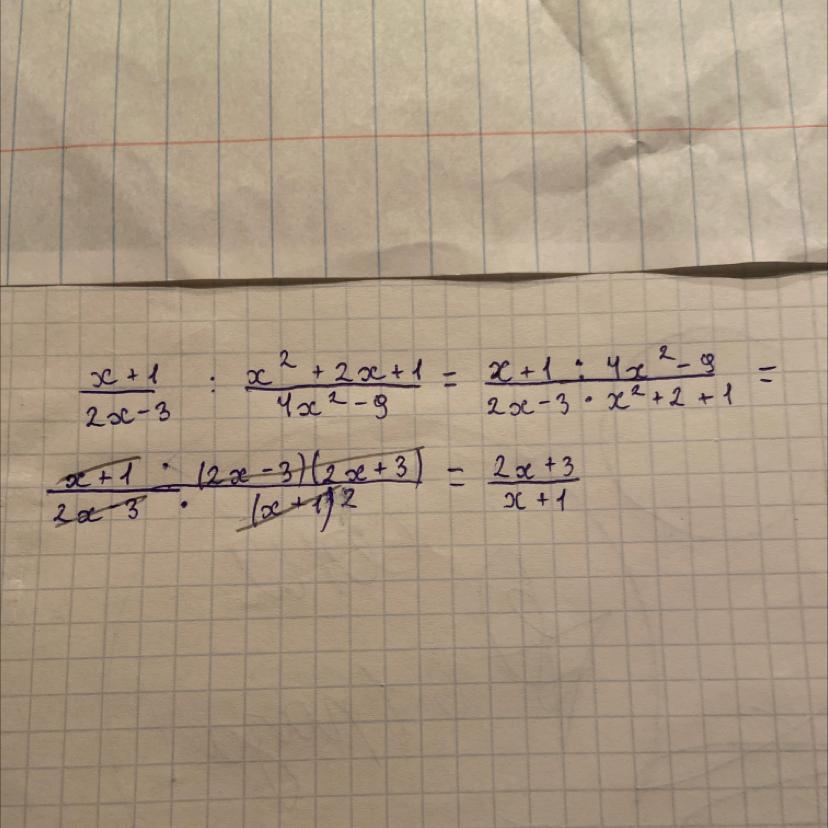 \frac{x+1}{2x-3} : \frac{x^2+2x+1}{4x^2-9} = \frac{x+1 : 4x^2-9}{2x-3 \cdot x^2+2+1} =
\frac{x+1 : (2x-3)(2x+3)}{2x-3 \cdot (x+1)2} = \frac{2x+3}{x+1}